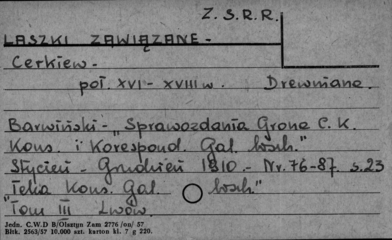 Z. S. R. R.
LASZKI ZAWIĄZANE -
Cerkiew -
poł. XVI - XVIII w. Drewniana.
Barwiński - "Sprawozdania Grona C. K.
Kons. i Korespond. Gal. wsch."
Styczeń - Grudzień 1910 - Nr. 76-87 s. 23
Teka Kons. Gal. wsch."
"Tom III Lwów.
Jedn. C.W.D B/Olsztyn Zam 2776 /on/ 57
Bltk. 2563/57 10.000 szt. karton kl. 7 g 220.